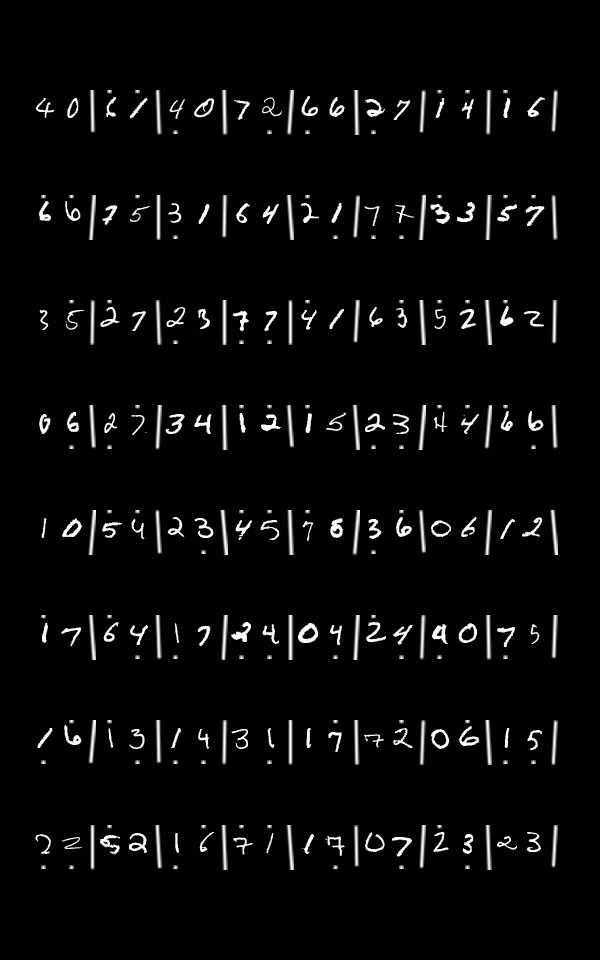 4 0 | 6̇ 1̇ | 4̣ 0 | 7 2̣ | 6̇ 6 | 2̣ 7 | 1̇ 4̇ | 1̇ 6 |
6̇ 6̇ | 7 5̇ | 3̣ 1 | 6 4 | 2̇ 1̣ | 7̣ 7̣ | 3̇ 3 | 5̇ 7̇ |
3 5̇ | 2̇ 7 | 2̣ 3 | 7̣ 7̣ | 4̇ 1 | 6 3̇ | 5̇ 2 | 6̇ 2 |
0 6̣̇ | 2̣ 7̇ | 3 4 | 1 2̣̇ | 1̇ 5 | 2̣ 3̣ | 4̇ 4̇ | 6̇ 6̣ |
1 0 | 5̇ 4̇ | 2 3̣ | 4̇ 5̇ | 7̇ 8 | 3̣ 6̇ | 0 6 | 1 2 |
1̇ 7 | 6̇ 4̣ | 1̣ 7 | 2̣ 4̣ | 0 4̣ | 2̇ 4̣ | 4̣ 0 | 7̣ 5 |
1̣ 6̇ | 1̇ 3̣ | 1̣ 4̣ | 3 1̣ | 1 7̇ | 7 2̇ | 0 6̇ | 1̣ 5̣ |
2̣ 2̣ | 5̇ 2 | 1̣ 6̇ | 7̇ 1̇ | 1 7̣ | 0 7̣ | 2̇ 3̣ | 2 3 |